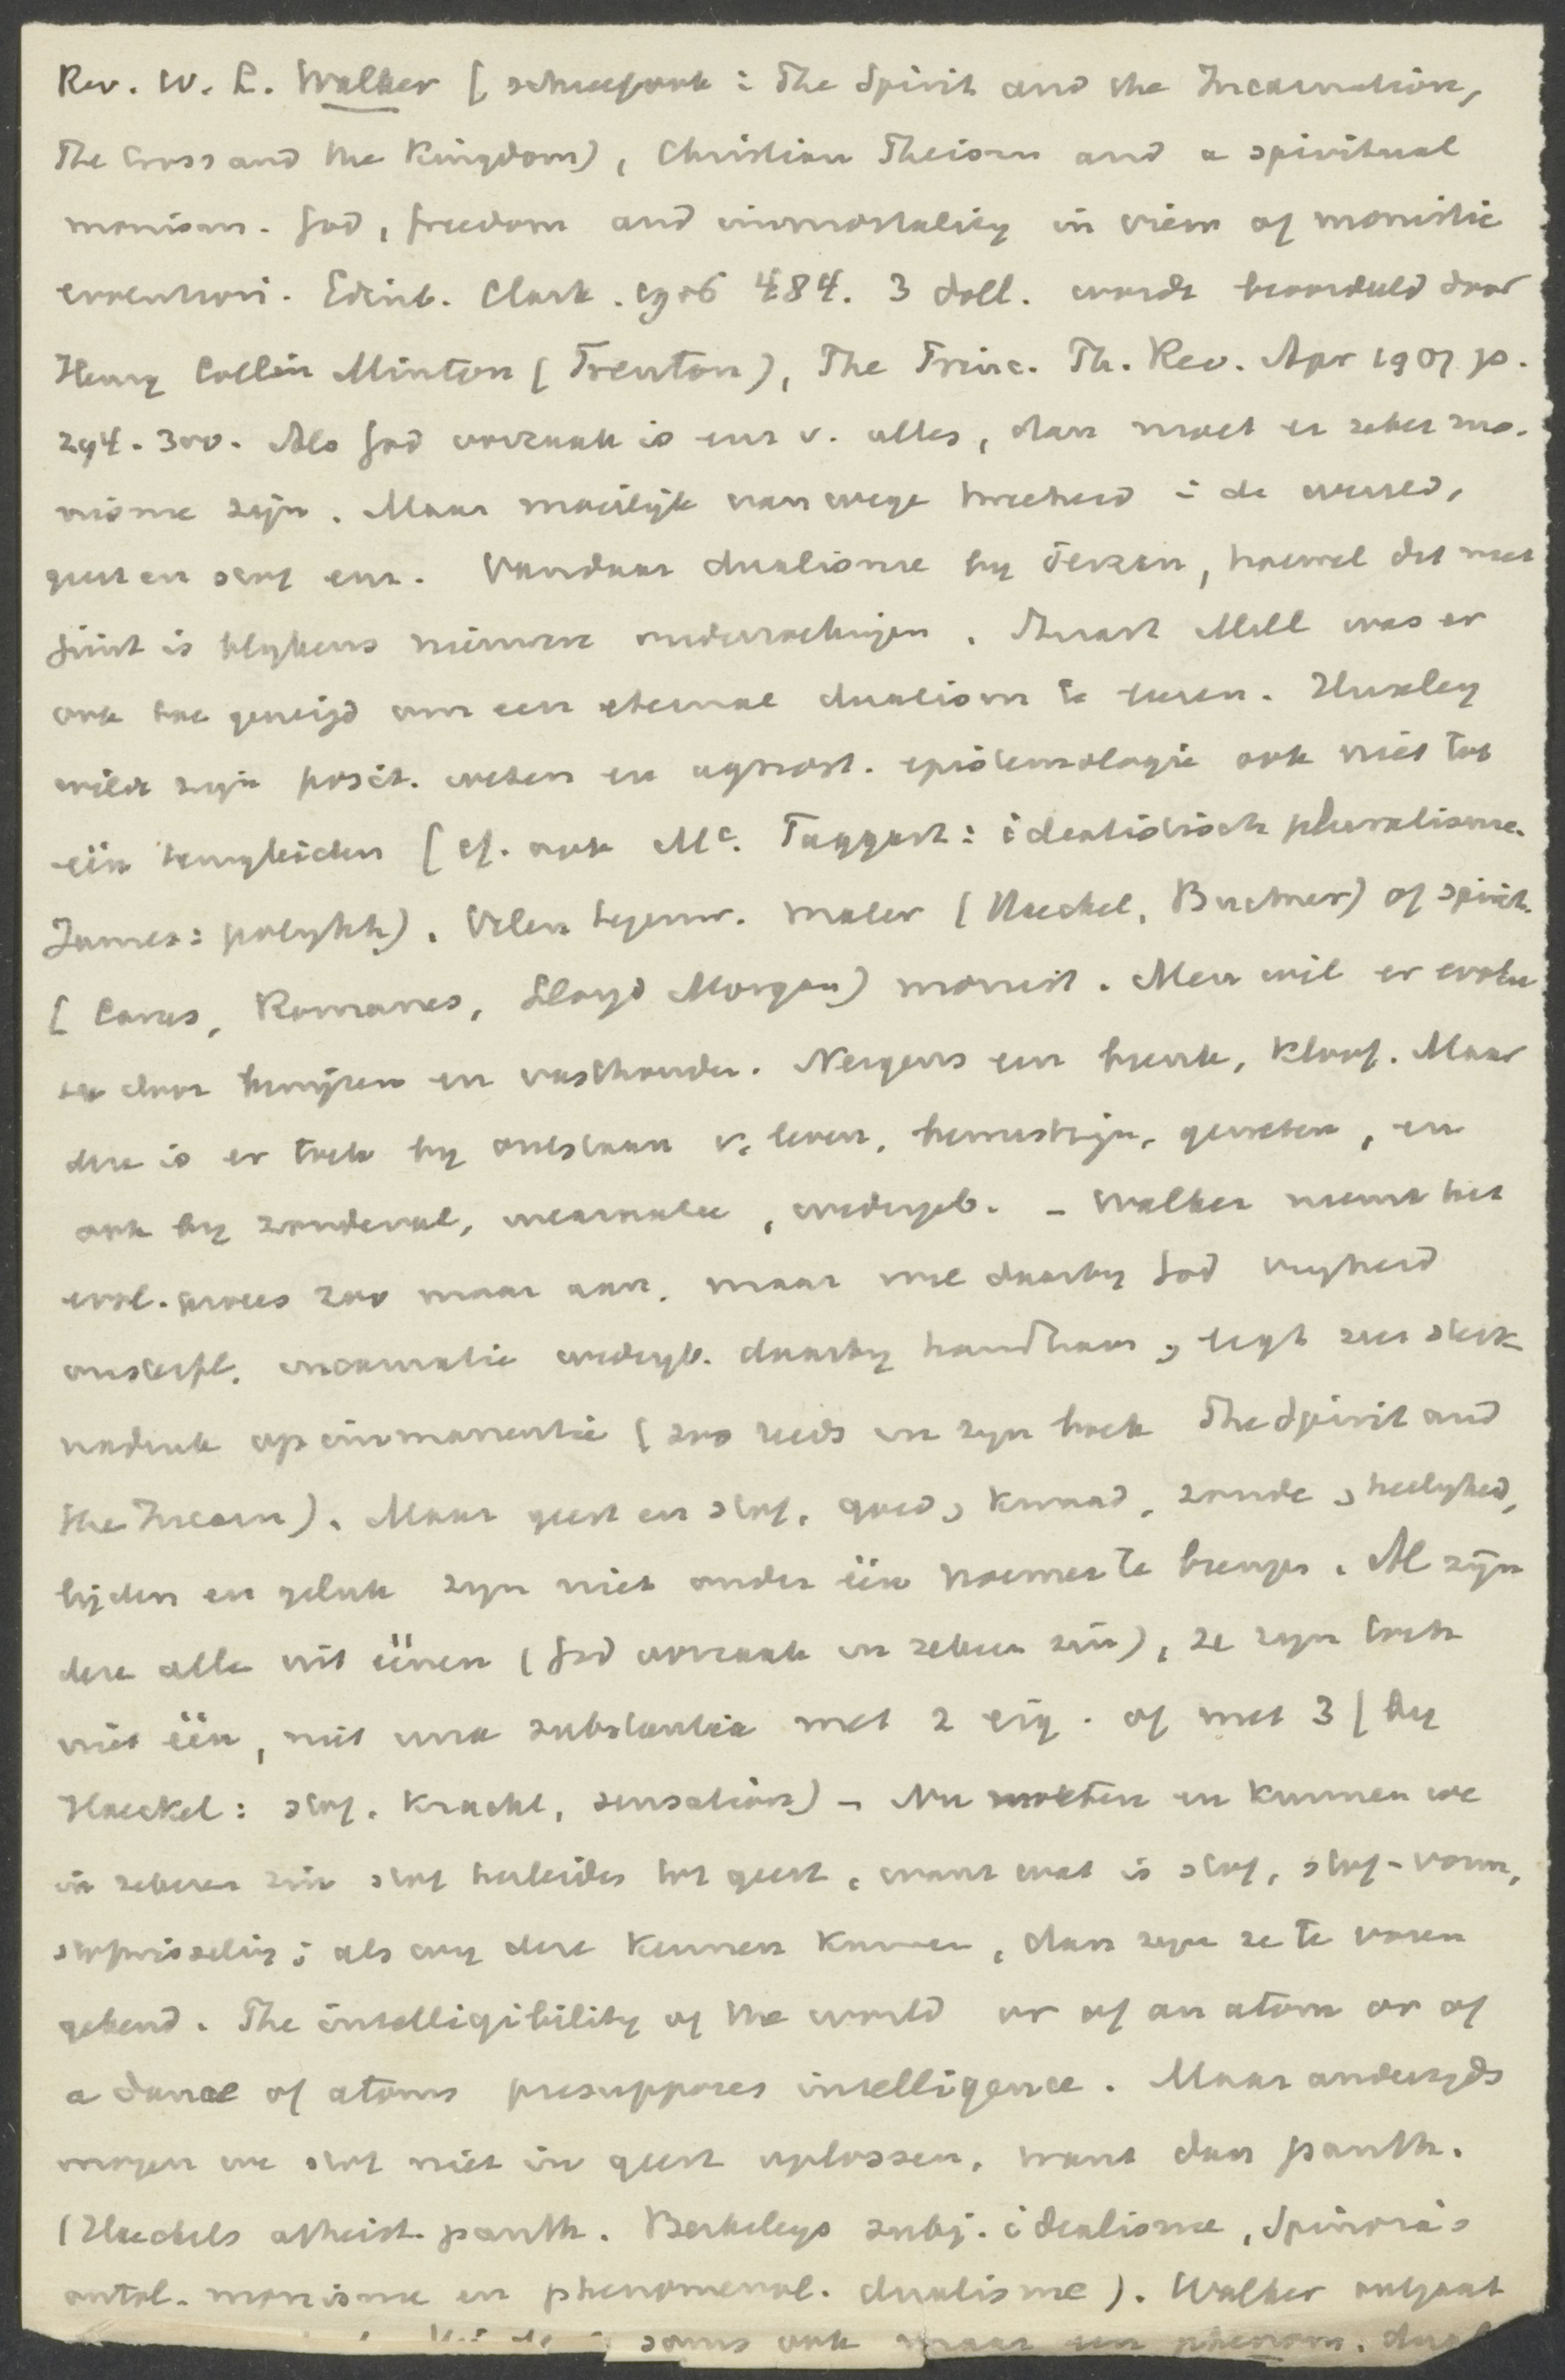 Rev. W. L. Walker (schreef ook : The Spirit and the Incarnation,
The Cross and the Kingdom), Christian Theism and a spiritual
monism. God, freedom and immortality in view of monistic
evolution. Edinb. Clark. 1906 484. 3 doll. wordt beoordeeld door
Henry Collin Minton (Trenton), The Princ. Th. Rev. Apr 1907 p.
294-300. Als God oorzaak is enz v. alles, dan moet er zeker mo-
nisme zijn. Maar moeilijk van wege tweeheid i de wereld,
geest en stof enz. Vandaar dualisme by Perzen, hoewel dit niet
juist is blykens nieuwere onderzoekingen. Stuart Mill was er
ook toe geneigd om een eternal dualism te leeren. Huxley
wilde zyn posit. weten en agnost. epistemologie ook niet tot
één herleiden (cf. ook Mc. Taggart : idealistisch pluralisme.
James : polyth). Velen tegenw. mater (Haeckel, Buchner) of spirit.
(Carus, Romanes, Lloyd Morgan) monist. Men wil er evolu
tie door bewijzen en vasthouden. Nergens een breuk, kloof. Maar
deze is er toch by ontstaan v. leven, bewustzijn, geweten, en
ook by zondeval, incarnatie, wedergeb. – Walker neemt het
evol. proces zoo maar aan, maar wil daarby God vryheid
onsterfl. incarnatie wedergeb. daarby handhaven, legt zeer sterk
nadruk op immanentie (zoo reeds in zyn boek The Spirit and
the Incarn). Maar geest en stof, goed, kwaad, zonde, heiligheid,
lijden en geluk zyn niet onder één noemer te brengen. Al zijn
deze alle uit éénen (God oorzaak in zekeren zin), ze zyn toch
niet één, niet una substantia met 2 eig. of met 3 (by
Haeckel : stof. kracht, sensation) – Nu moeten en kunnen we
in zekeren zin stof herleiden tot geest, want wat is stof, stof-vorm,
stofwisseling ; als wy deze kennen kunnen, dan zyn ze te voren
gekend. The intelligibility of the world or of an atom or of
a dance of atoms presupposes intelligence. Maar anderzyds
mogen we stof niet in geest oplossen, want dan panth.
(Haeckels atheist. panth. Berkeleys subj. idealisme, Spinoza's
ontol. monisme en phenomenal. dualisme). Walker ontgaat
soms ook maar een phenom. dual